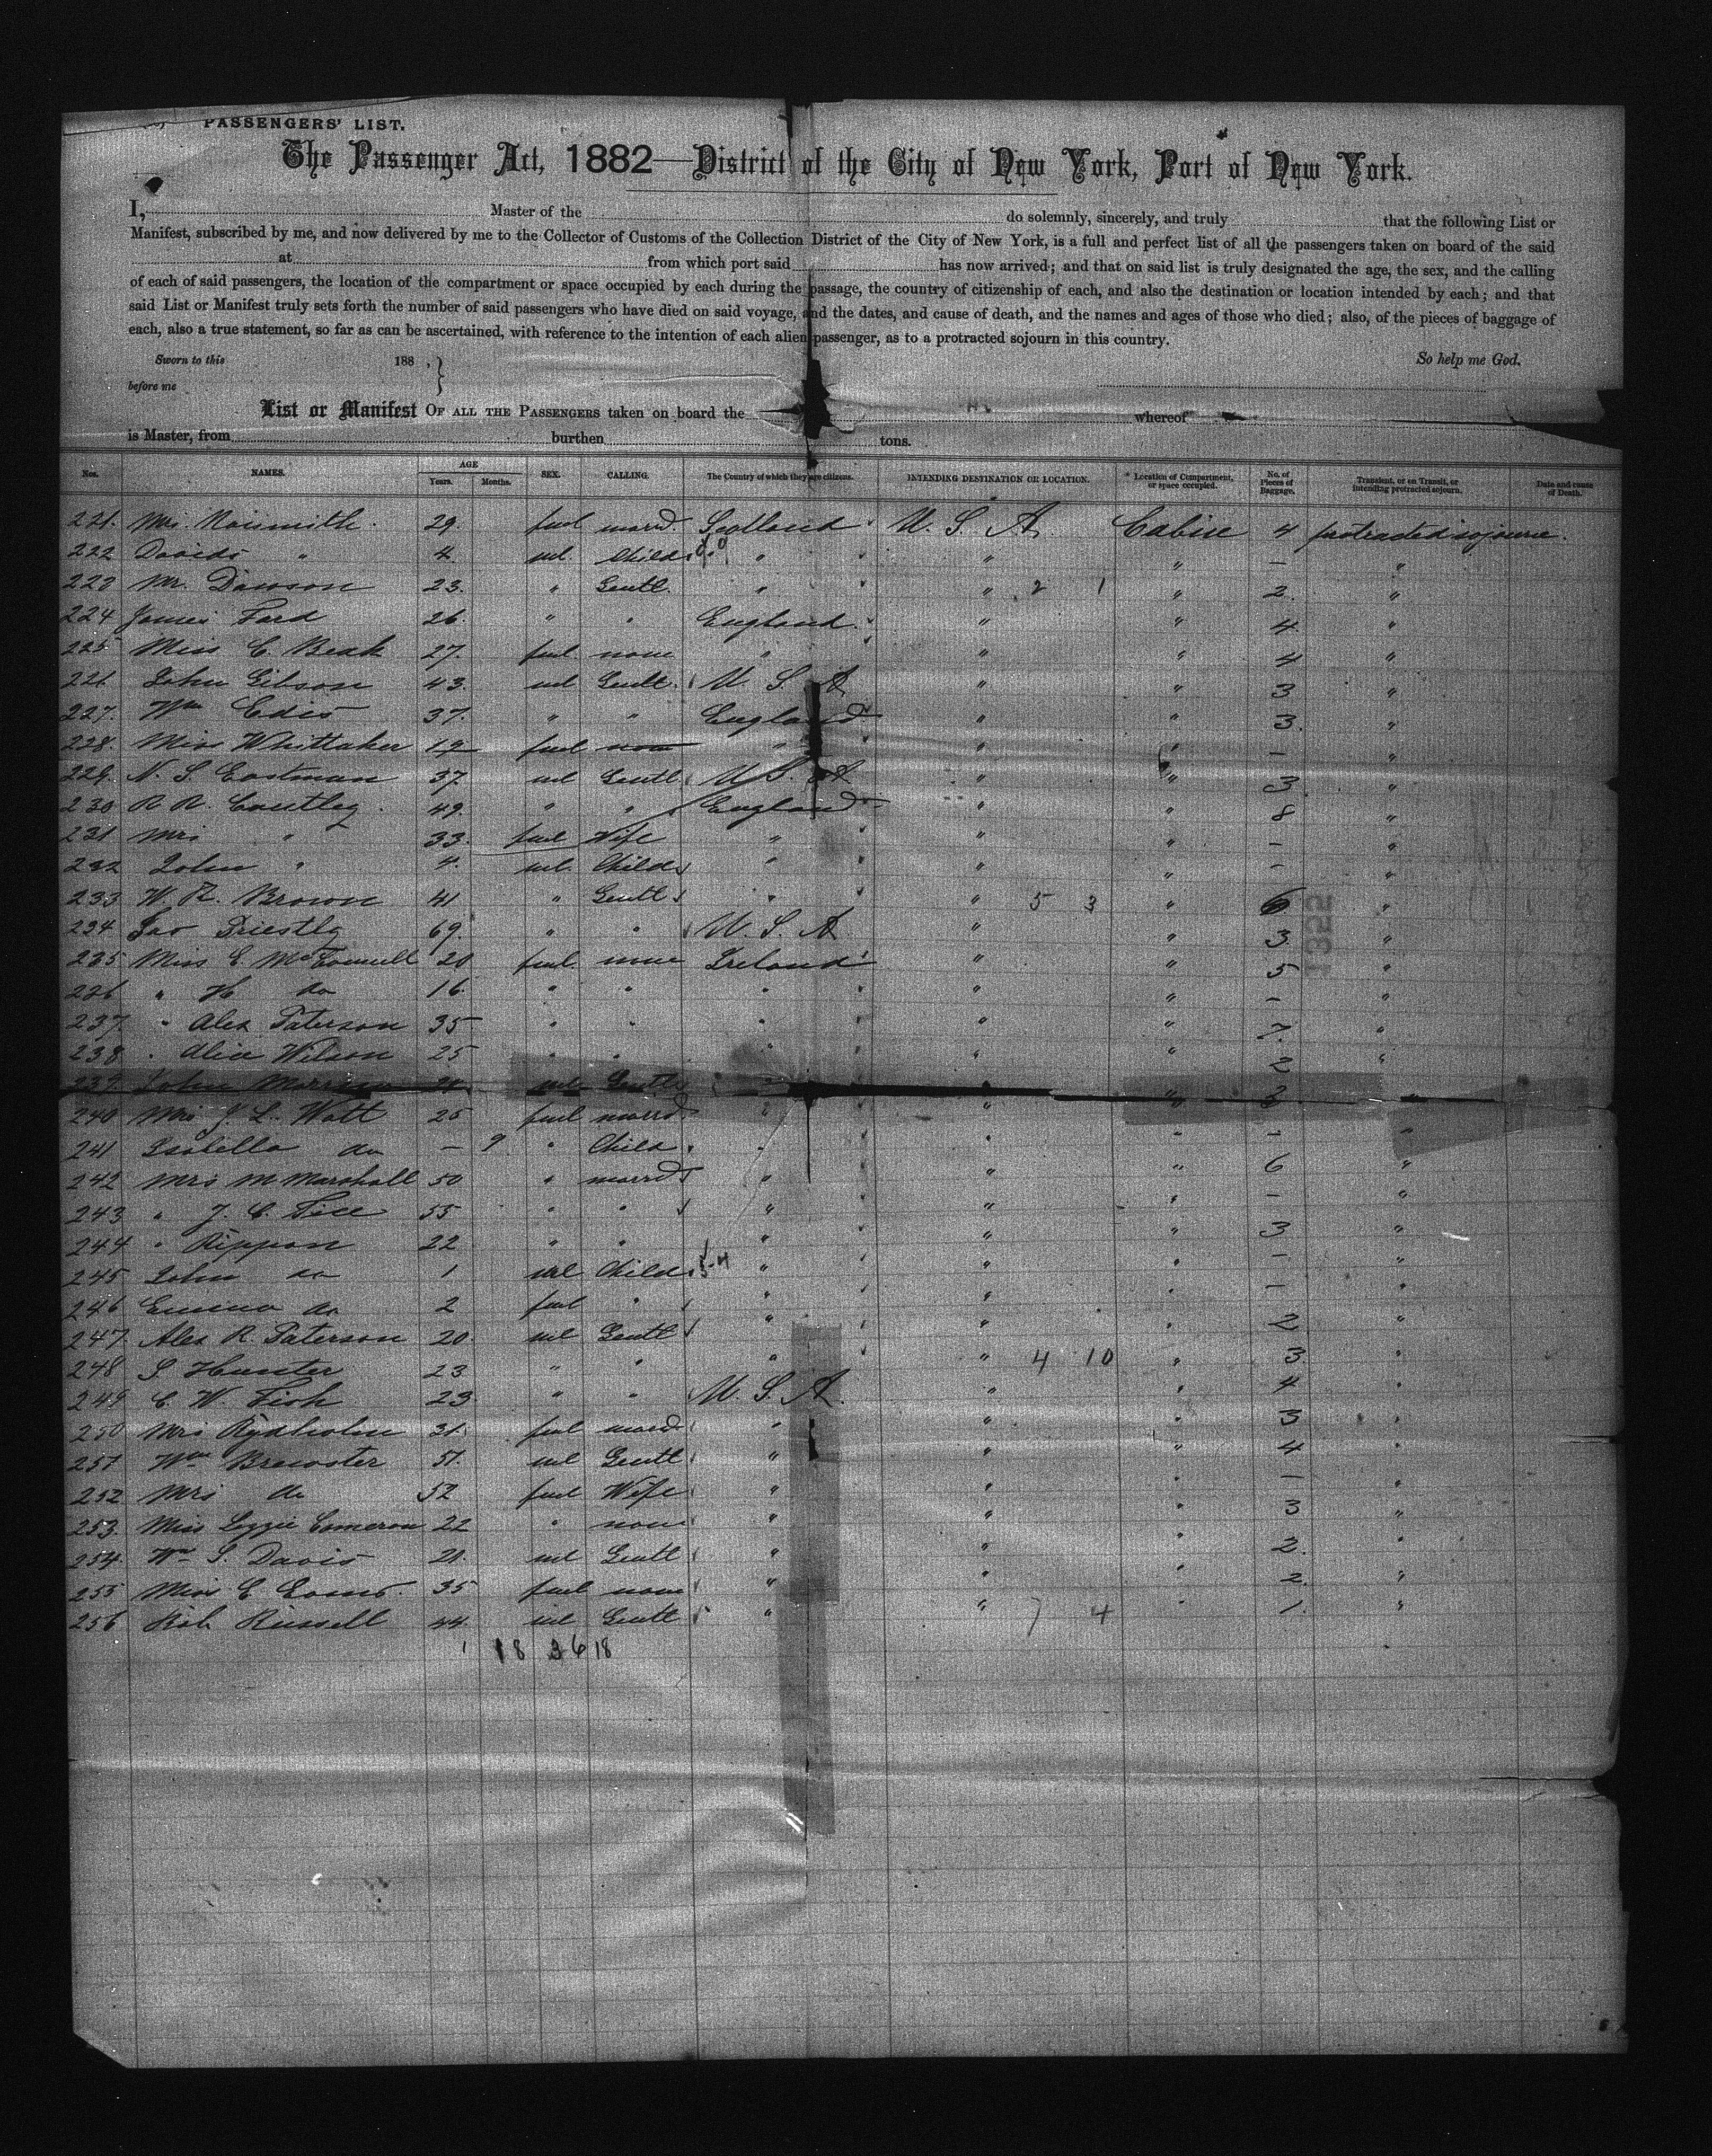 PASSENGERS' LIST.
The Passenger Act, 1882—District of the City of New York, Port of New York.
I, Master of the do solemnly, sincerely, and truly that the following List or
Manifest, subscribed by me, and now delivered by me to the Collector of Customs of the Collection District of the City of New York, is a full and perfect list of all the passengers taken on board of the said
at from which port said has now arrived; and that on said list is truly designated the age, the sex, and the calling
of each of said passengers, the location of the compartment or space occupied by each during the passage, the country of citizenship of each, and also the destination or location intended by each; and that
said List or Manifest truly sets forth the number of said passengers who have died on said voyage, and the dates, and cause of death, and the names and ages of those who died; also, of the pieces of baggage of
each, also a true statement, so far as can be ascertained, with reference to the intention of each alien passenger, as to a protracted sojourn in this country.
Sworn to this 188 , } So help me God.
before me
List or Manifest OF ALL THE PASSENGERS taken on board the whereof
is Master, from burthen tons.
Nos. NAMES. AGE Years. Months. SEX. CALLING. The Country of which they are citizens. INTENDING DESTINATION OR LOCATION. * Location of Compartment, or space occupied. No. of Pieces of Baggage. Transient, or on Transit, or intending protracted sojourn. Date and cause of Death.
221. Mrs. Naismith. 29. fml marrd Scotland U. S. A. Cabin 4 protracted sojourn.
222 Davids " 4. ml. Child " " " — "
223 Mr. Dawson 23. " Gentl. " " 2 1 " 2. "
224 James Ford 26. " " England. " " 4. "
225 Miss C. Beak 27. fml. none " " " 4 "
226 John Gibson 43. ml Gentl. U. S. A " " 3 "
227. Wm Edis 37. " " England " " 3. "
228. Miss Whittaker 19 fml none " " " — "
229. N. S. Eastman 37. ml Gentl U. S. A " " 3 "
230 R. R. Cautley. 49. " " England " " 8 "
231 Mrs " 33. fml Wife " " " — "
232 John " 4. ml. Child " " " — "
233 W. R. Brown 41 " Gentl " " 5 3 " 6 "
234 Jao Priestly 69. " " U. S. A " " 3. "
235 Miss E. McConnell 20 fml. none Ireland " " 5 "
236 " H do 16. " " " " " — "
237 " Alex Paterson 35 " " " " " 7. "
238 " Alice Wilson 25 " " " " " 2 "
239. John Morrison ml Gentl " " " 3 "
240 Mrs J. L. Watt 25 fml marrd " " " — "
241 Isabella do — 9 " Child " " " — "
242 Mrs M Marshall 50 " marrd " " " 6 "
243 " J. C. Tice 55 " " " " " — "
244 " Rippon 22 " " " " " 3 "
245 John do 1 ml Child " " " — "
246 Emma do 2 fml " " " " — "
247 Alex R. Paterson 20. ml Gentl " " " 2 "
248 S Hunter 23 " " " " 4 10 " 3. "
249 C. W. Fish 23 " " U. S. A. " " 4 "
250 Mrs Rydholm 31. fml marrd " " " 3 "
251 Wm Brewster 51. ml Gentl " " " 4 "
252 Mrs do 52 fml Wife " " " — "
253. Miss Lizzie Cameron 22 " none " " " 3 "
254. Wm S. Davis 21. ml Gentl " " " 2. "
255 Miss E Eams 35 fml none " " " 2. "
256 Rob Russell 44. ml Gentl " " 7 4 " 1. "
1 18 36 18